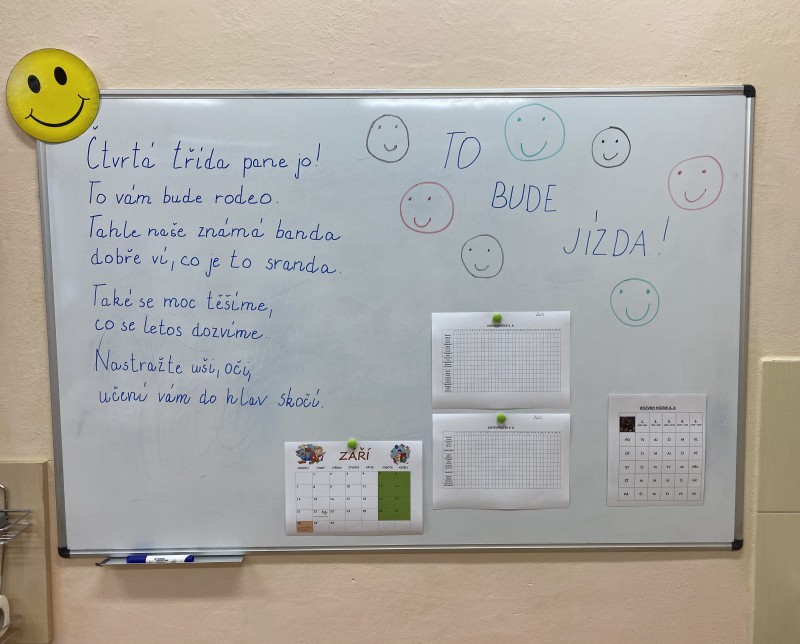 Čtvrtá třída pane jo!
To vám bude rodeo.
Tahle naše známá banda
dobře ví, co je to sranda.
Také se moc těšíme,
co se letos dozvíme.
Nastražte uši, oči,
učení vám do hlav skočí.
TO
BUDE
JÍZDA!
ZÁŘÍ